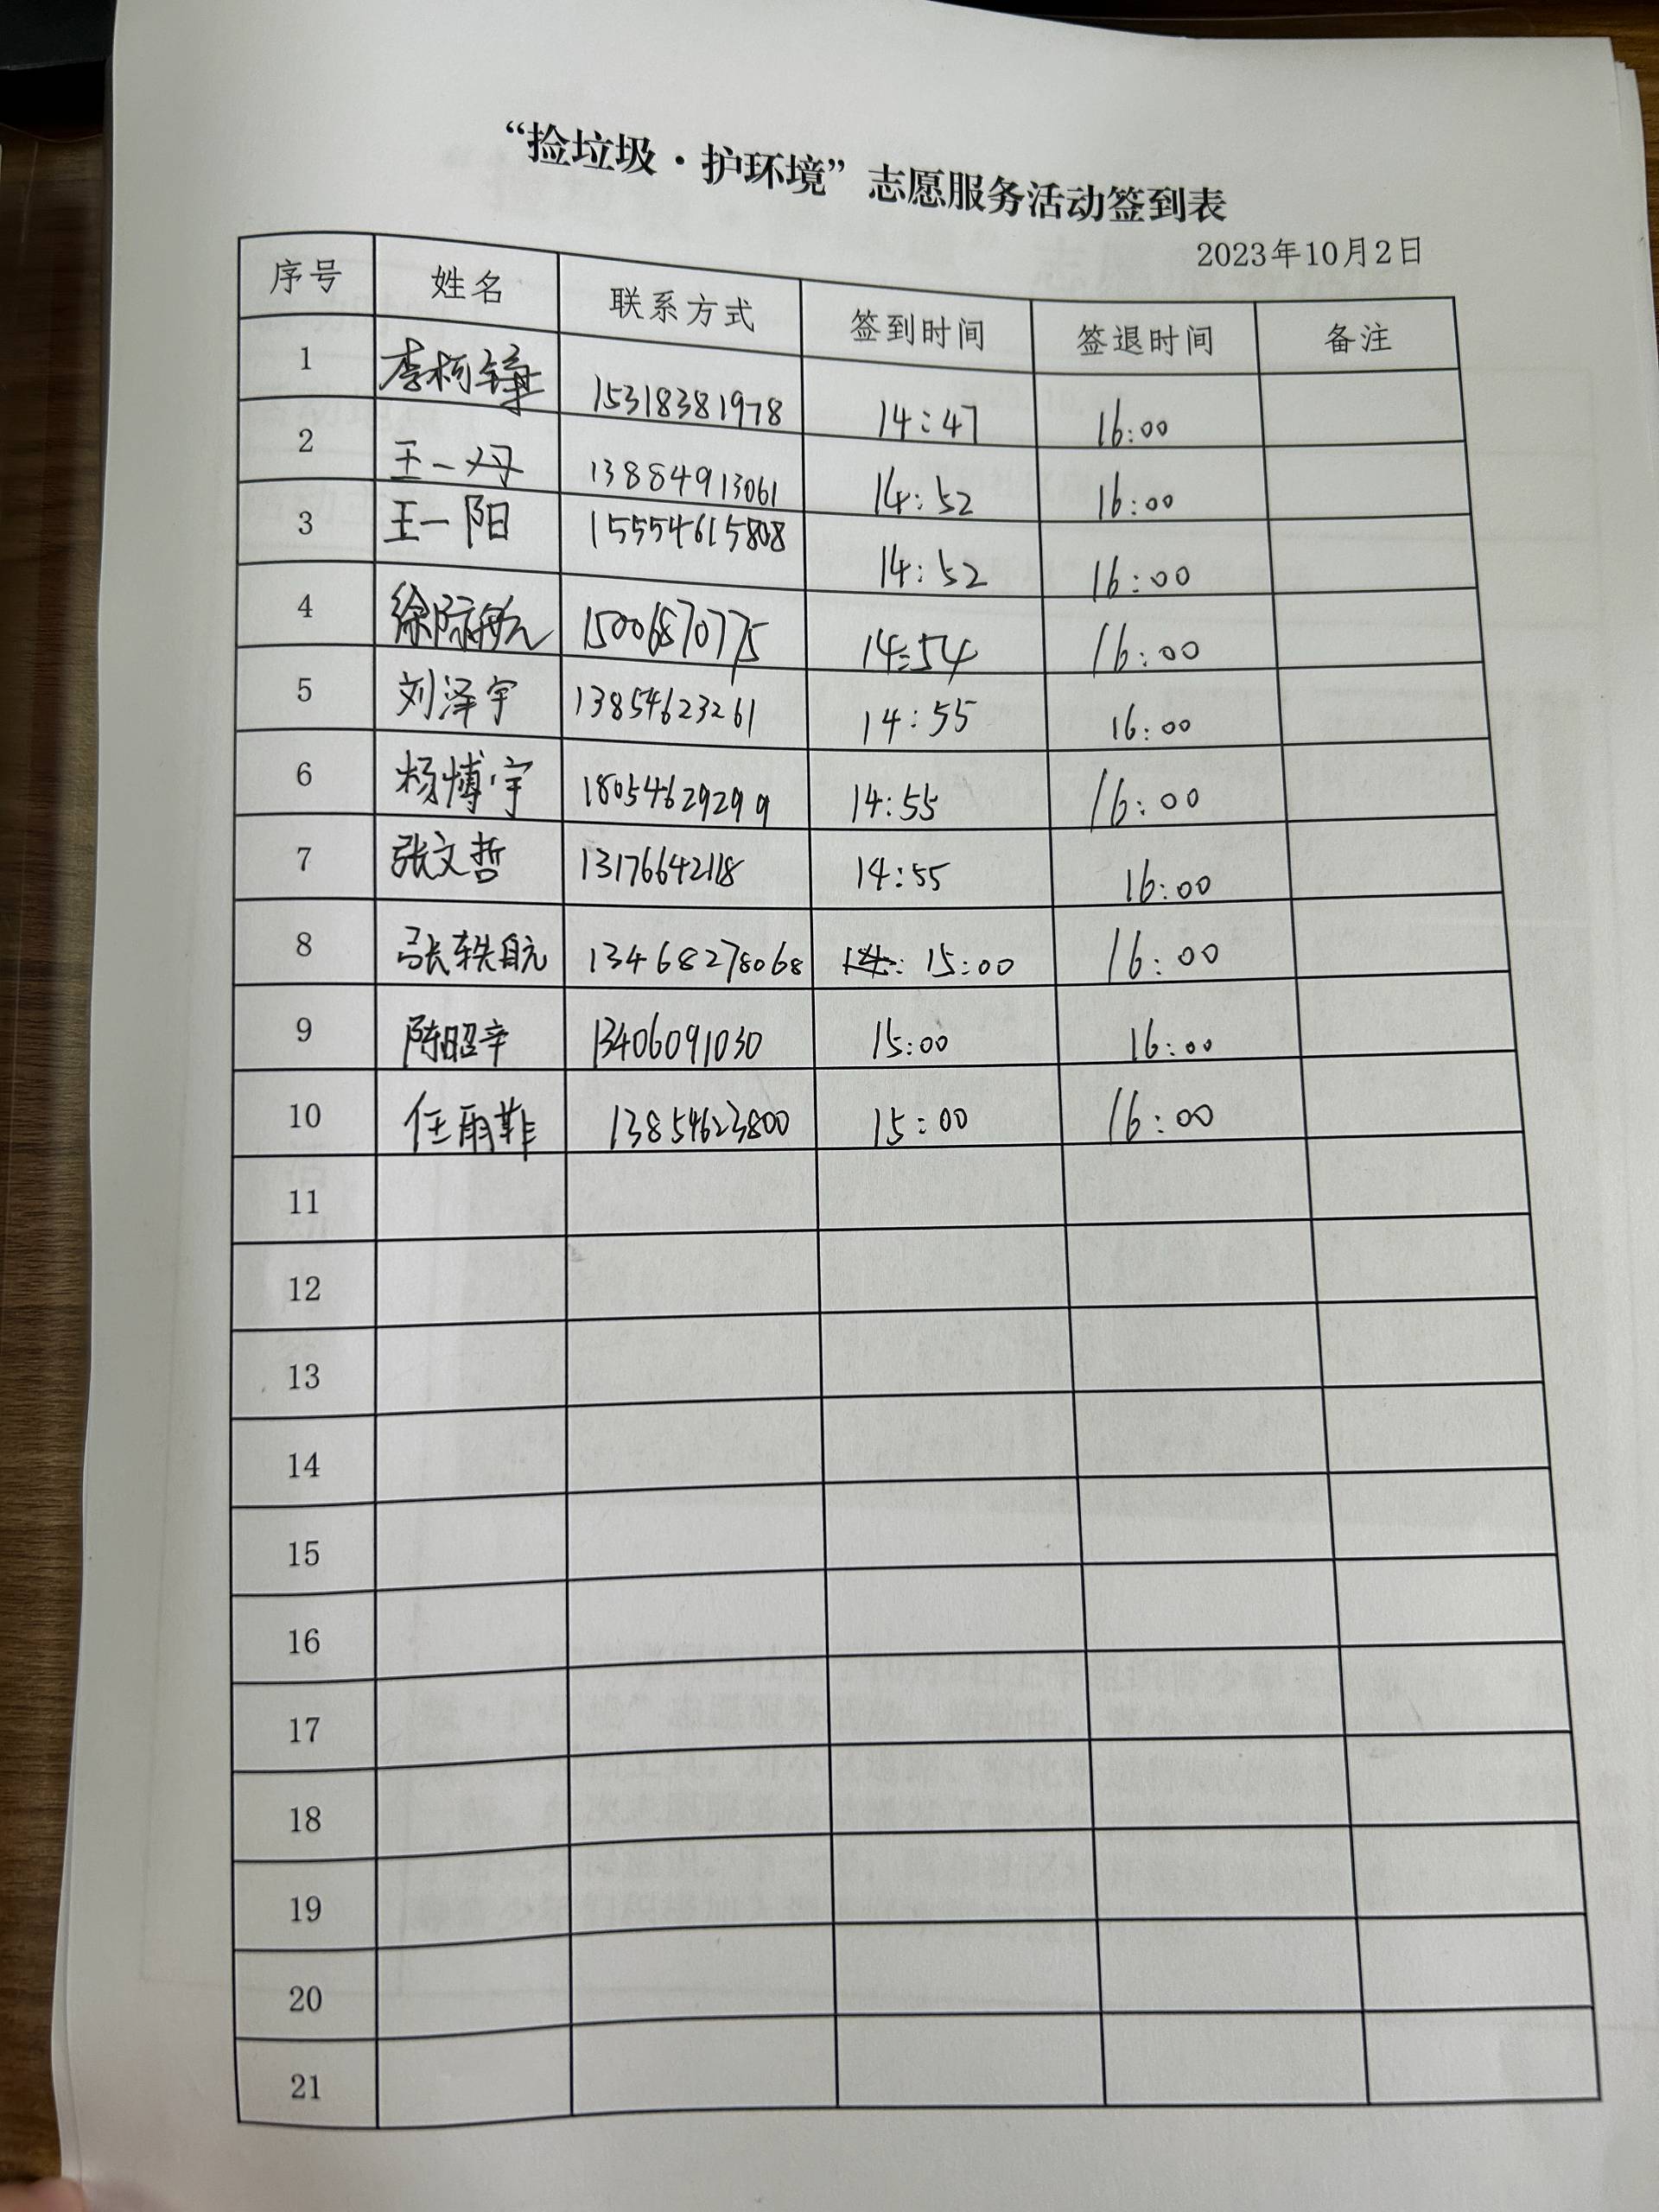 “捡垃圾·护环境”志愿服务活动签到表
2023年10月2日
序号 姓名 联系方式 签到时间 签退时间 备注
1 李柯锋 15318381978 14:47 16:00
2 王一丹 13884913061 14:52 16:00
3 王一阳 15554615808 14:52 16:00
4 徐际航 15006870775 14:54 16:00
5 刘泽宇 13854623261 14:55 16:00
6 杨博宇 18054629299 14:55 16:00
7 张文哲 13176642118 14:55 16:00
8 张轶航 13468278068 15:00 16:00
9 陈昭辛 13406091030 15:00 16:00
10 任雨菲 13854623800 15:00 16:00
11
12
13
14
15
16
17
18
19
20
21